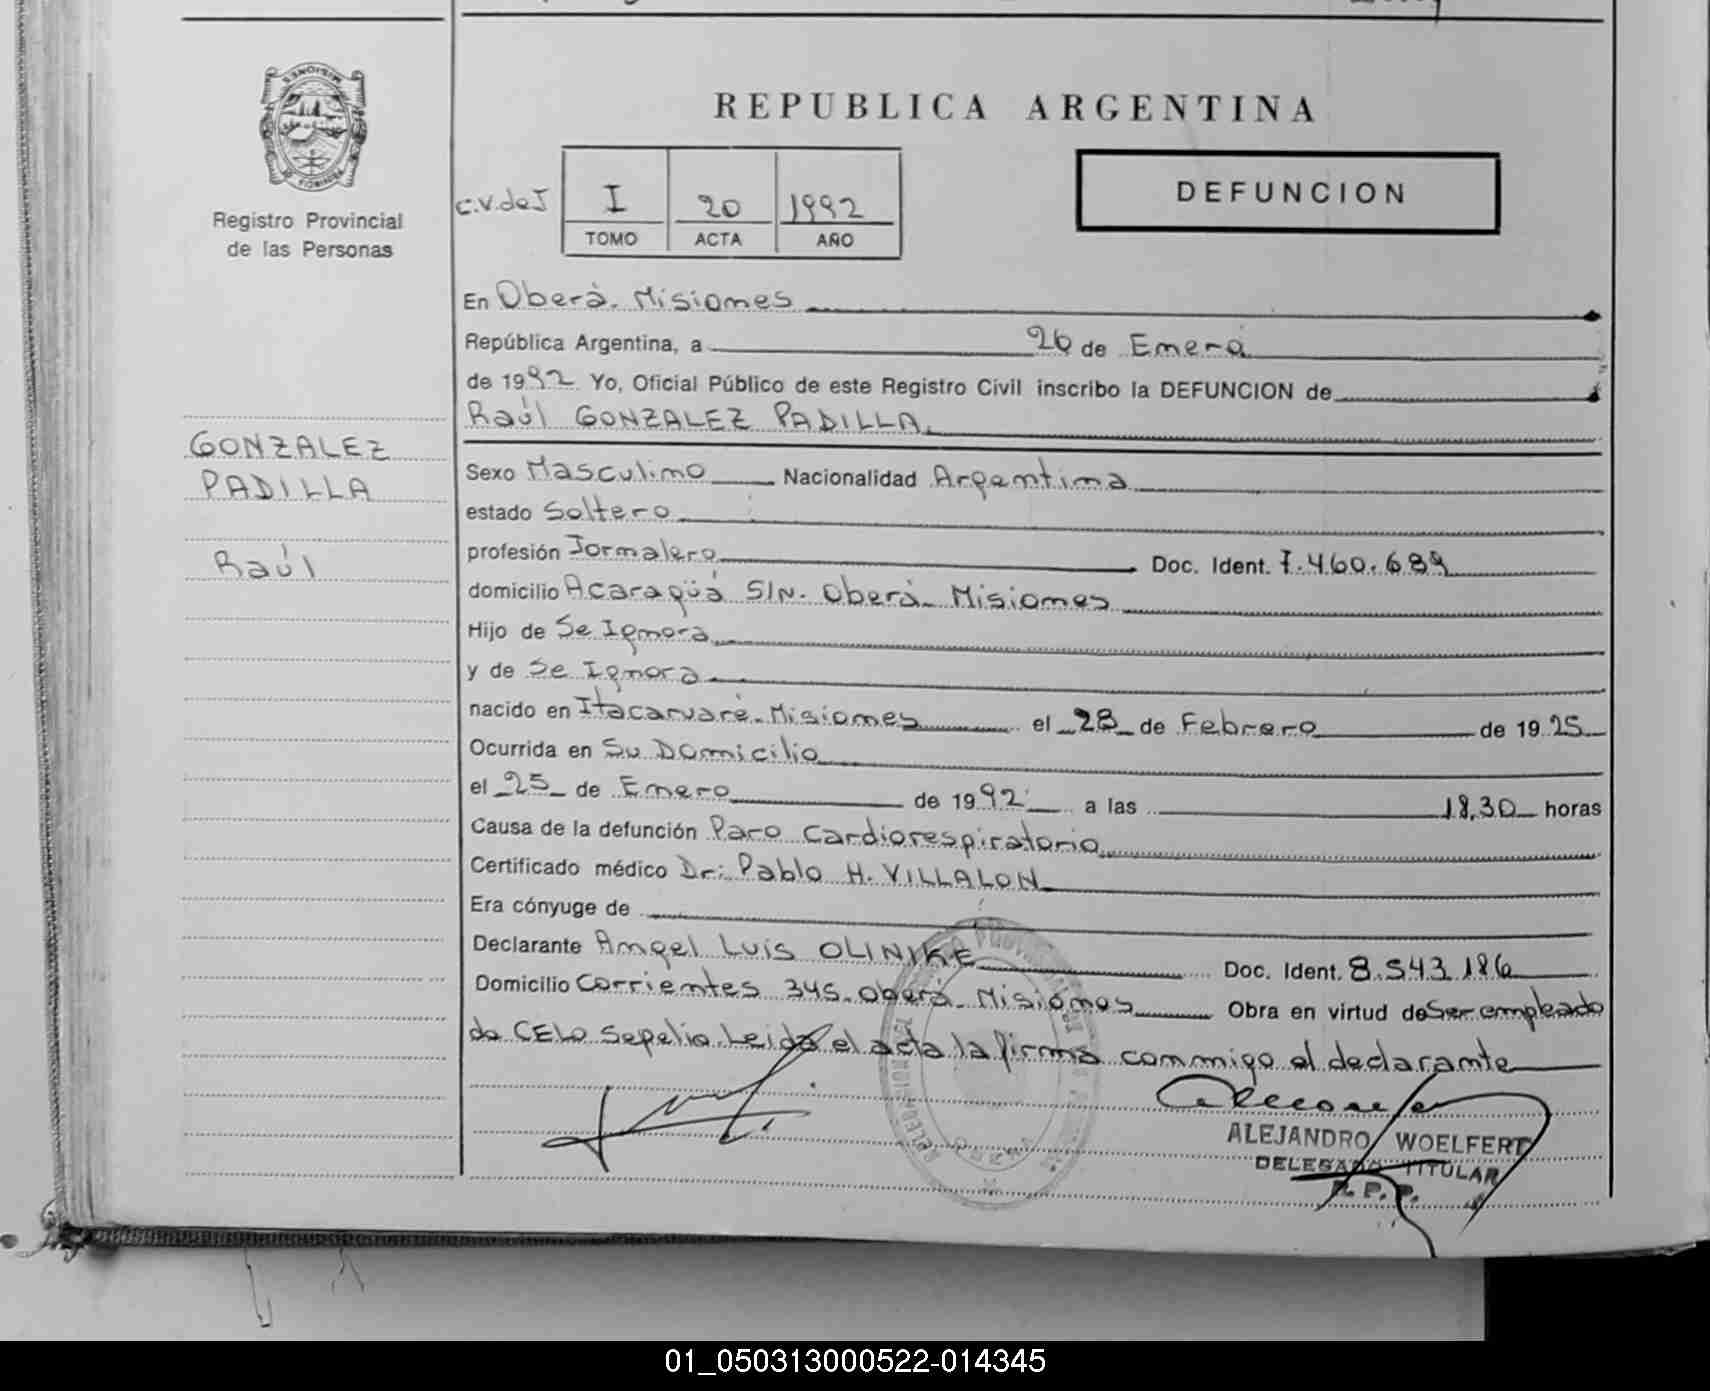 REPUBLICA ARGENTINA
DEFUNCION
c.v.deJ
I 20 1992
TOMO ACTA AÑO
Registro Provincial
de las Personas
GONZALEZ
PADILLA
Raúl
En Oberá. Misiones
República Argentina, a 26 de Enero
de 1992 Yo, Oficial Público de este Registro Civil inscribo la DEFUNCION de
Raúl GONZALEZ PADILLA.
Sexo Masculino Nacionalidad Argentina
estado Soltero
profesión Jornalero Doc. Ident. 7.460.689
domicilio Acaragüá S/N. Oberá. Misiones
Hijo de Se Ignora
y de Se Ignora
nacido en Itacaruaré. Misiones el 28 de Febrero de 1925
Ocurrida en Su Domicilio
el 25 de Enero de 1992 a las 18,30 horas
Causa de la defunción Paro Cardiorespiratorio
Certificado médico Dr: Pablo H. VILLALON
Era cónyuge de
Declarante Angel Luis OLINIKE Doc. Ident. 8.543.186
Domicilio Corrientes 345. Oberá. Misiones Obra en virtud de Ser empleado
de CELO Sepelio. Leida el acta la firma conmigo el declarante
ALEJANDRO WOELFERT
DELEGADO TITULAR
R. P. P.
01_050313000522-014345